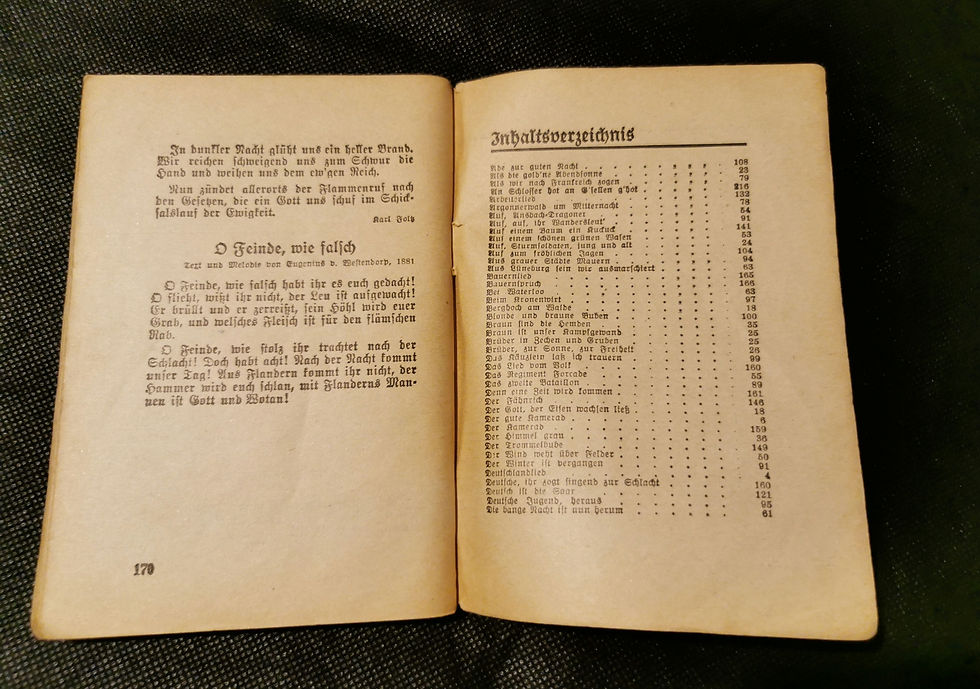 In dunkler Nacht glüht uns ein heller Brand.
Wir reichen schweigend uns zum Schwur die
Hand und weihen uns dem ew'gen Reich.
Nun zündet allerorts der Flammenruf nach
den Gesetzen, die ein Gott uns schuf im Schick-
salslauf der Ewigkeit.
Karl Foltz
O Feinde, wie falsch
Text und Melodie von Eugenius v. Westendorp, 1881
O Feinde, wie falsch habt ihr es euch gedacht!
O flieht, wißt ihr nicht, der Leu ist aufgewacht!
Er brüllt und er zerreißt, sein Höhl wird euer
Grab, und welsches Fleisch ist für den flämschen
Rab.
O Feinde, wie stolz ihr trachtet nach der
Schlacht! Doch habt acht! Nach der Nacht kommt
unser Tag! Aus Flandern kommt ihr nicht, der
Hammer wird euch schlan, mit Flanderns Man-
nen ist Gott und Wotan!
170
Inhaltsverzeichnis
Ade zur guten Nacht 108
Als die gold'ne Abendsonne 23
Als wir nach Frankreich zogen 79
An Schlosser hot an G'sellen g'hot 216
Arbeiterlied 132
Argonnerwald um Mitternacht 78
Auf, Ansbach-Dragoner 54
Auf, auf, ihr Wandersleut' 91
Auf einem Baum ein Kuckuck 141
Auf einem schönen grünen Wasen 53
Auf, Sturmsoldaten, jung und alt 24
Auf zum fröhlichen Jagen 104
Aus grauer Städte Mauern 94
Aus Lüneburg sein wir ausmarschiert 63
Bauernlied 165
Bauernspruch 166
Bei Waterloo 63
Beim Kronenwirt 97
Berghoch am Walde 18
Blonde und braune Buben 100
Braun sind die Hemden 35
Braun ist unser Kampfgewand 25
Brüder in Zechen und Gruben 25
Brüder, zur Sonne, zur Freiheit 26
Das Käuzlein laß ich trauern 99
Das Lied vom Volk 160
Das Regiment Forcade 55
Das zweite Bataillon 89
Denn eine Zeit wird kommen 161
Der Fähnrich 146
Der Gott, der Eisen wachsen ließ 18
Der gute Kamerad 6
Der Kamerad 159
Der Himmel grau 36
Der Trommelbube 149
Der Wind weht über Felder 50
Der Winter ist vergangen 91
Deutschlandlied 4
Deutsche, ihr zogt singend zur Schlacht 160
Deutsch ist die Saar 121
Deutsche Jugend, heraus 95
Die bange Nacht ist nun herum 61